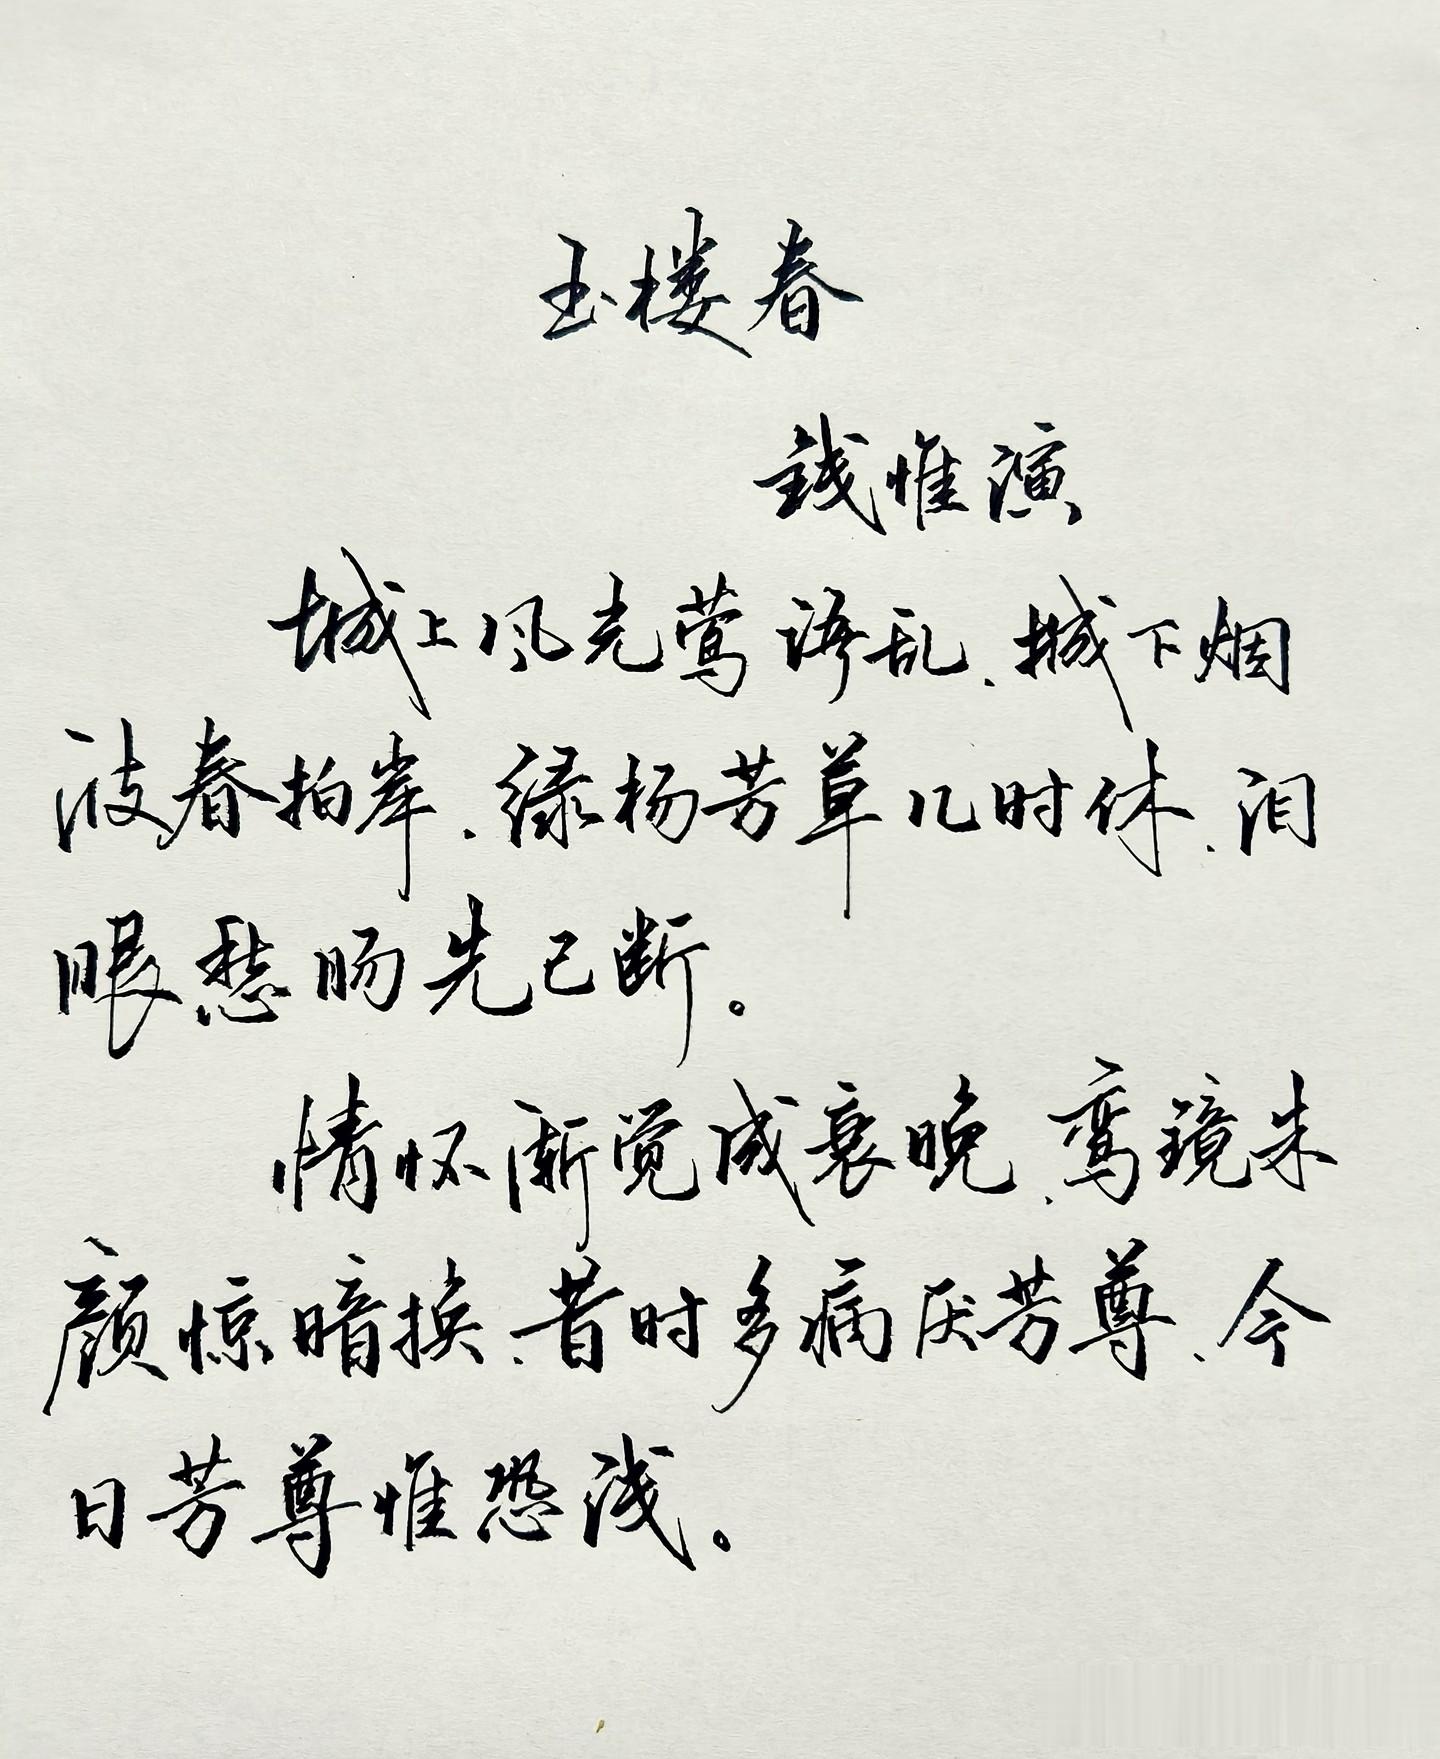 玉楼春
钱惟演
城上风光莺语乱.城下烟
波春拍岸.绿杨芳草几时休.泪
眼愁肠先已断。
情怀渐觉成衰晚.鸾镜朱
颜惊暗换.昔时多病厌芳尊.今
日芳尊惟恐浅。